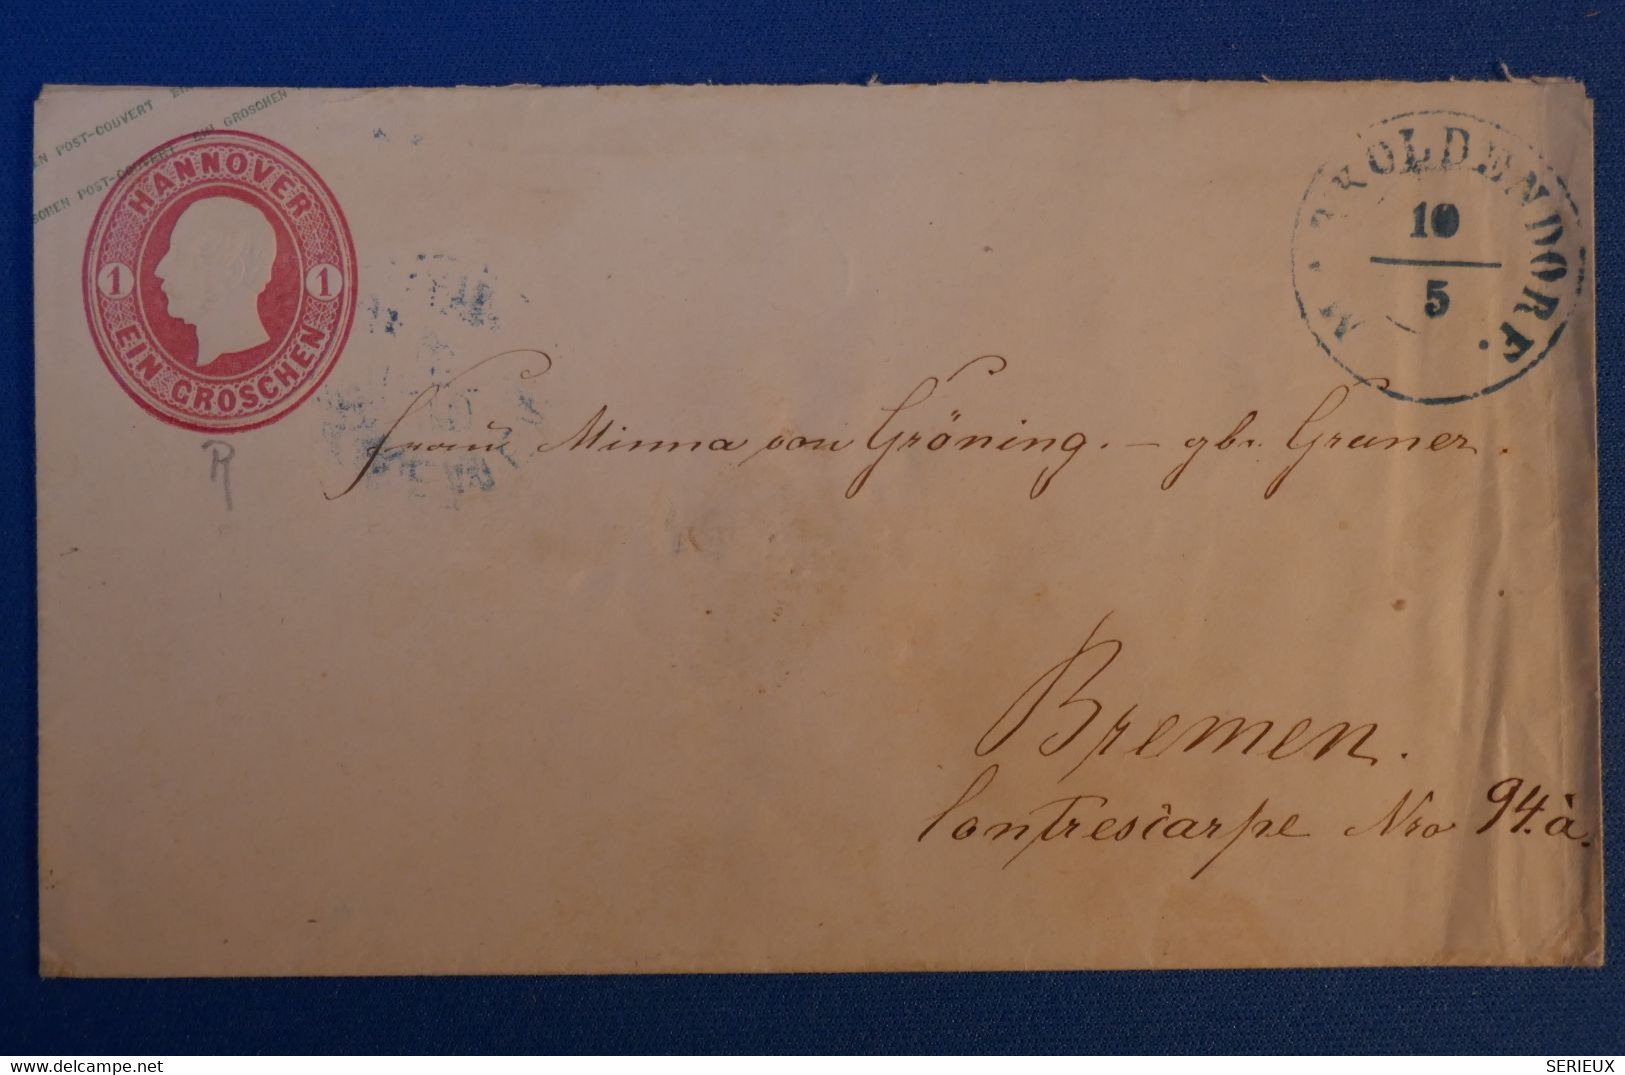 EN POST-COUVERT EI
SCHEN POST-COUVERT EIN GROSCHEN
HANNOVER
1 1
EIN GROSCHEN
MARKOLDENDORF.
10
5
R
Frau Minna von Gröning. — gbr. Gruner.
Bremen.
Contrescarpe Nro 94.a.
delcampe.net
SERIEUX